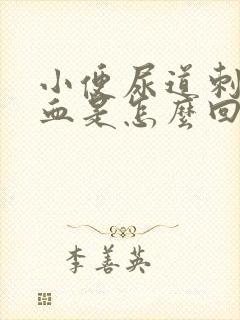 小便尿道刺
血是怎麼回
李善英